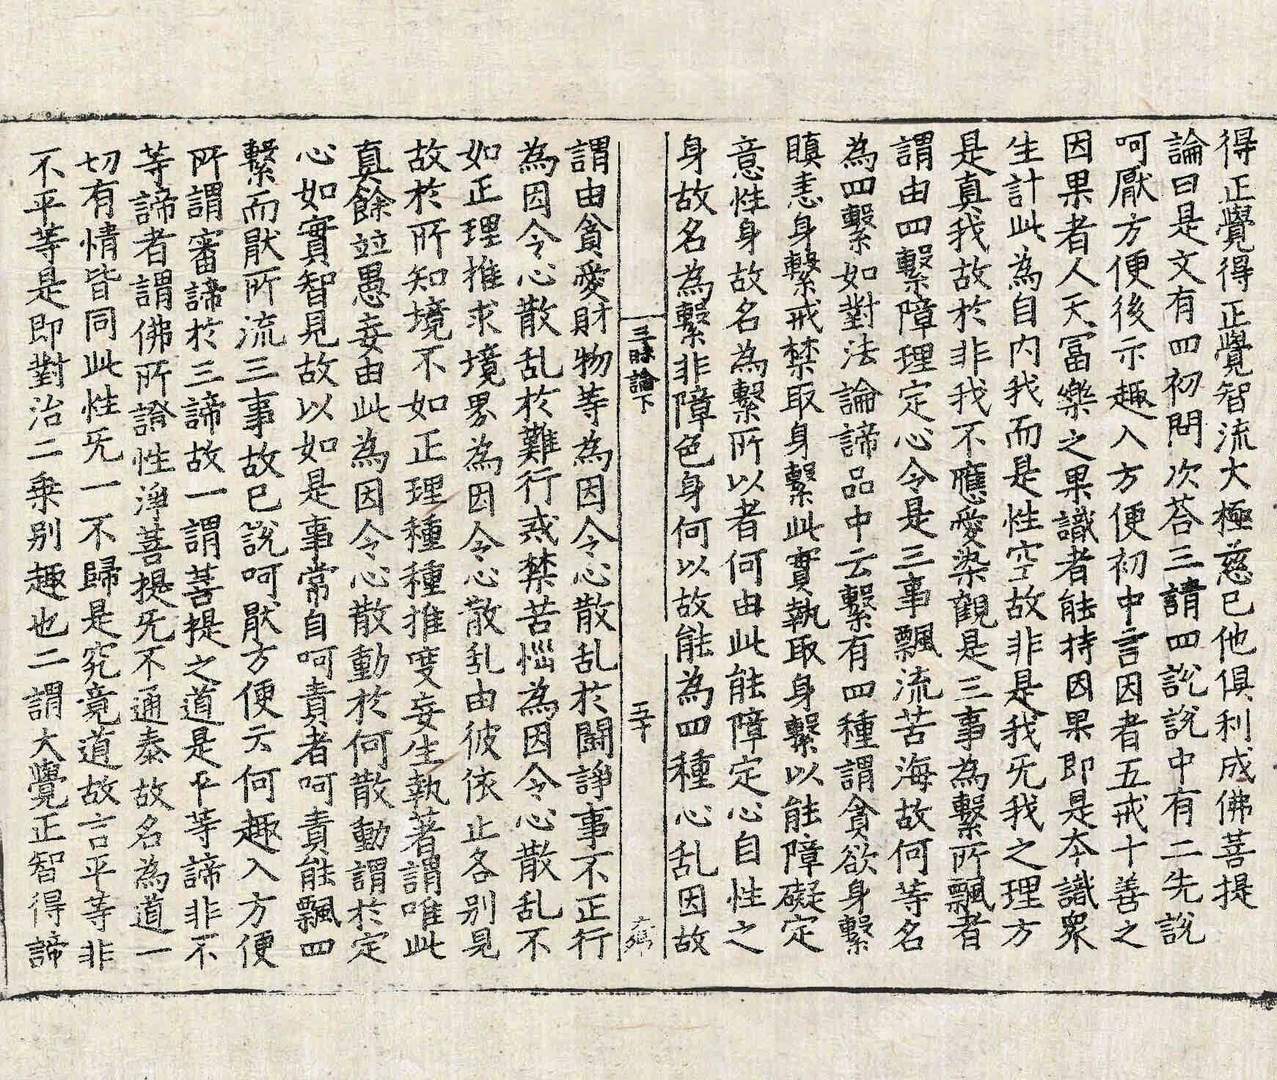 得正覺得正覺智流大極慈已他俱利成佛菩提
論曰是文有四初問次荅三請四說說中有二先說
呵厭方便後示趣入方便初中言因者五戒十善之
因果者人天冨樂之果識者能持因果即是夲識衆
生計此為自内我而是性空故非是我旡我之理方
是真我故於非我不應愛染觀是三事為繫所飄者
謂由四繫障理定心令是三事飄流苦海故何等名
為四繫如對法論諦品中云繫有四種謂貪欲身繫
瞋恚身繫戒禁取身繫此實執取身繫以能障礙定
意性身故名為繫所以者何由此能障定心自性之
身故名為繫非障色身何以故能為四種心乱因故
三昧論下 三十
謂由貪愛財物等為因令心散乱於鬪諍事不正行
為因令心散乱於難行戒禁苦惱為因令心散乱不
如正理推求境界為因令心散乱由彼依止各別見
故於所知境不如正理種種推度妄生執著謂唯此
真餘並愚妄由此為因令心散動於何散動謂於定
心如實智見故以如是事常自呵責者呵責能飄四
繫而猒所流三事故已說呵猒方便云何趣入方便
所謂審諦於三諦故一謂菩提之道是平等諦非不
等諦者謂佛所證性淨菩提旡不通泰故名為道一
切有情皆同此性旡一不歸是究竟道故言平等非
不平等是即對治二乗別趣也二謂大覺正智得諦